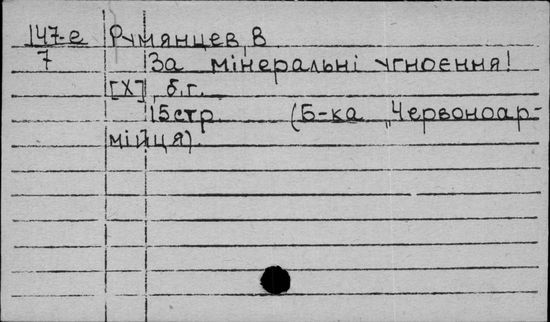 147-е Румянцев, В
7 За мінеральні угноєння!
[Х], б.г.
15стр (Б-ка „Червоноар-
мійця).